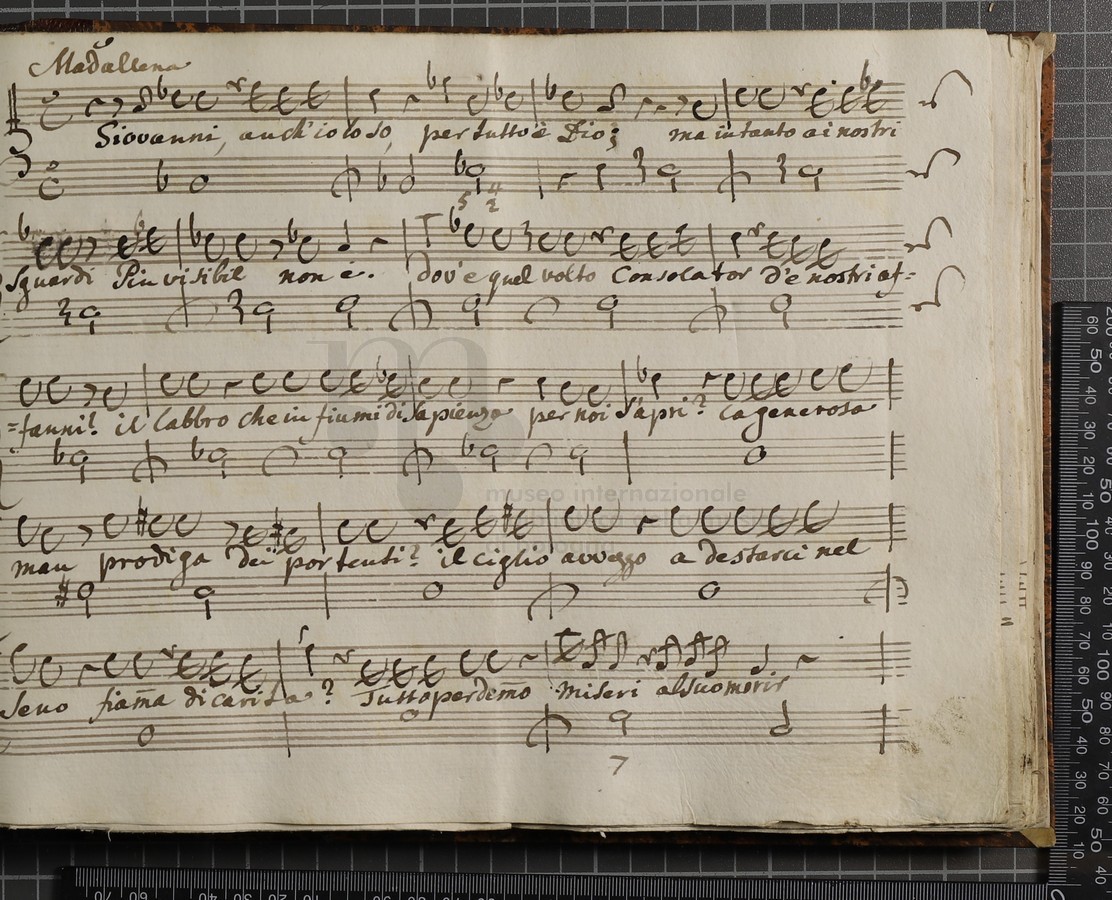 Madallena
Giovanni, anch'io lo so, per tutto è Dio; ma in tanto ai nostri
5 4
2
Sguardi Piu visibil non è. dov'e quel volto Consolator de nostri af=
=fanni? il labbro che in fiumi di Sapienza per noi S'apri? la generosa
man prodiga dei portenti? il ciglio avvezzo a destarci nel
Seno fiama di carita? Tutto perdemo Miseri al Suo morir
7
museo internazionale